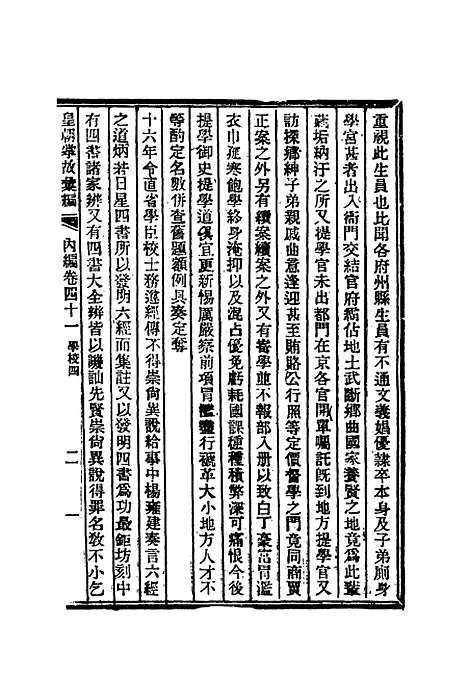 重視此生員也比聞各府州縣生員有不通文義娼優隸卒本身及子弟廁身
學宮甚者出入衙門交結官府霸佔地土武斷鄉曲國家養賢之地竟爲此輩
藏垢納汙之所又提學官未出都門在京各官開單囑託既到地方提學官又
訪探鄉紳子弟親戚曲意逢迎甚至賄賂公行照等定價督學之門竟同商賈
正案之外另有續案續案之外又有寄學並不報部入册以致白丁豪富冒濫
衣巾孤寒飽學終身淹抑以及混占優免虧耗國課種種積弊深可痛恨今後
提學御史提學道俱宜更新惕厲嚴察前項冒濫盡行褫革大小地方人才不
等酌定名數併查舊題額例具奏定奪
十六年令直省學臣校士務遵經傳不得崇尙異說給事中楊雍建奏言六經
之道炳若日星四書所以發明六經而集註又以發明四書爲功最鉅坊刻中
有四書諸家辨又有四書大全辨皆以譏訕先賢崇尙異說得罪名敎不小乞
皇朝掌故彙編 內編卷四十一 學校四 二